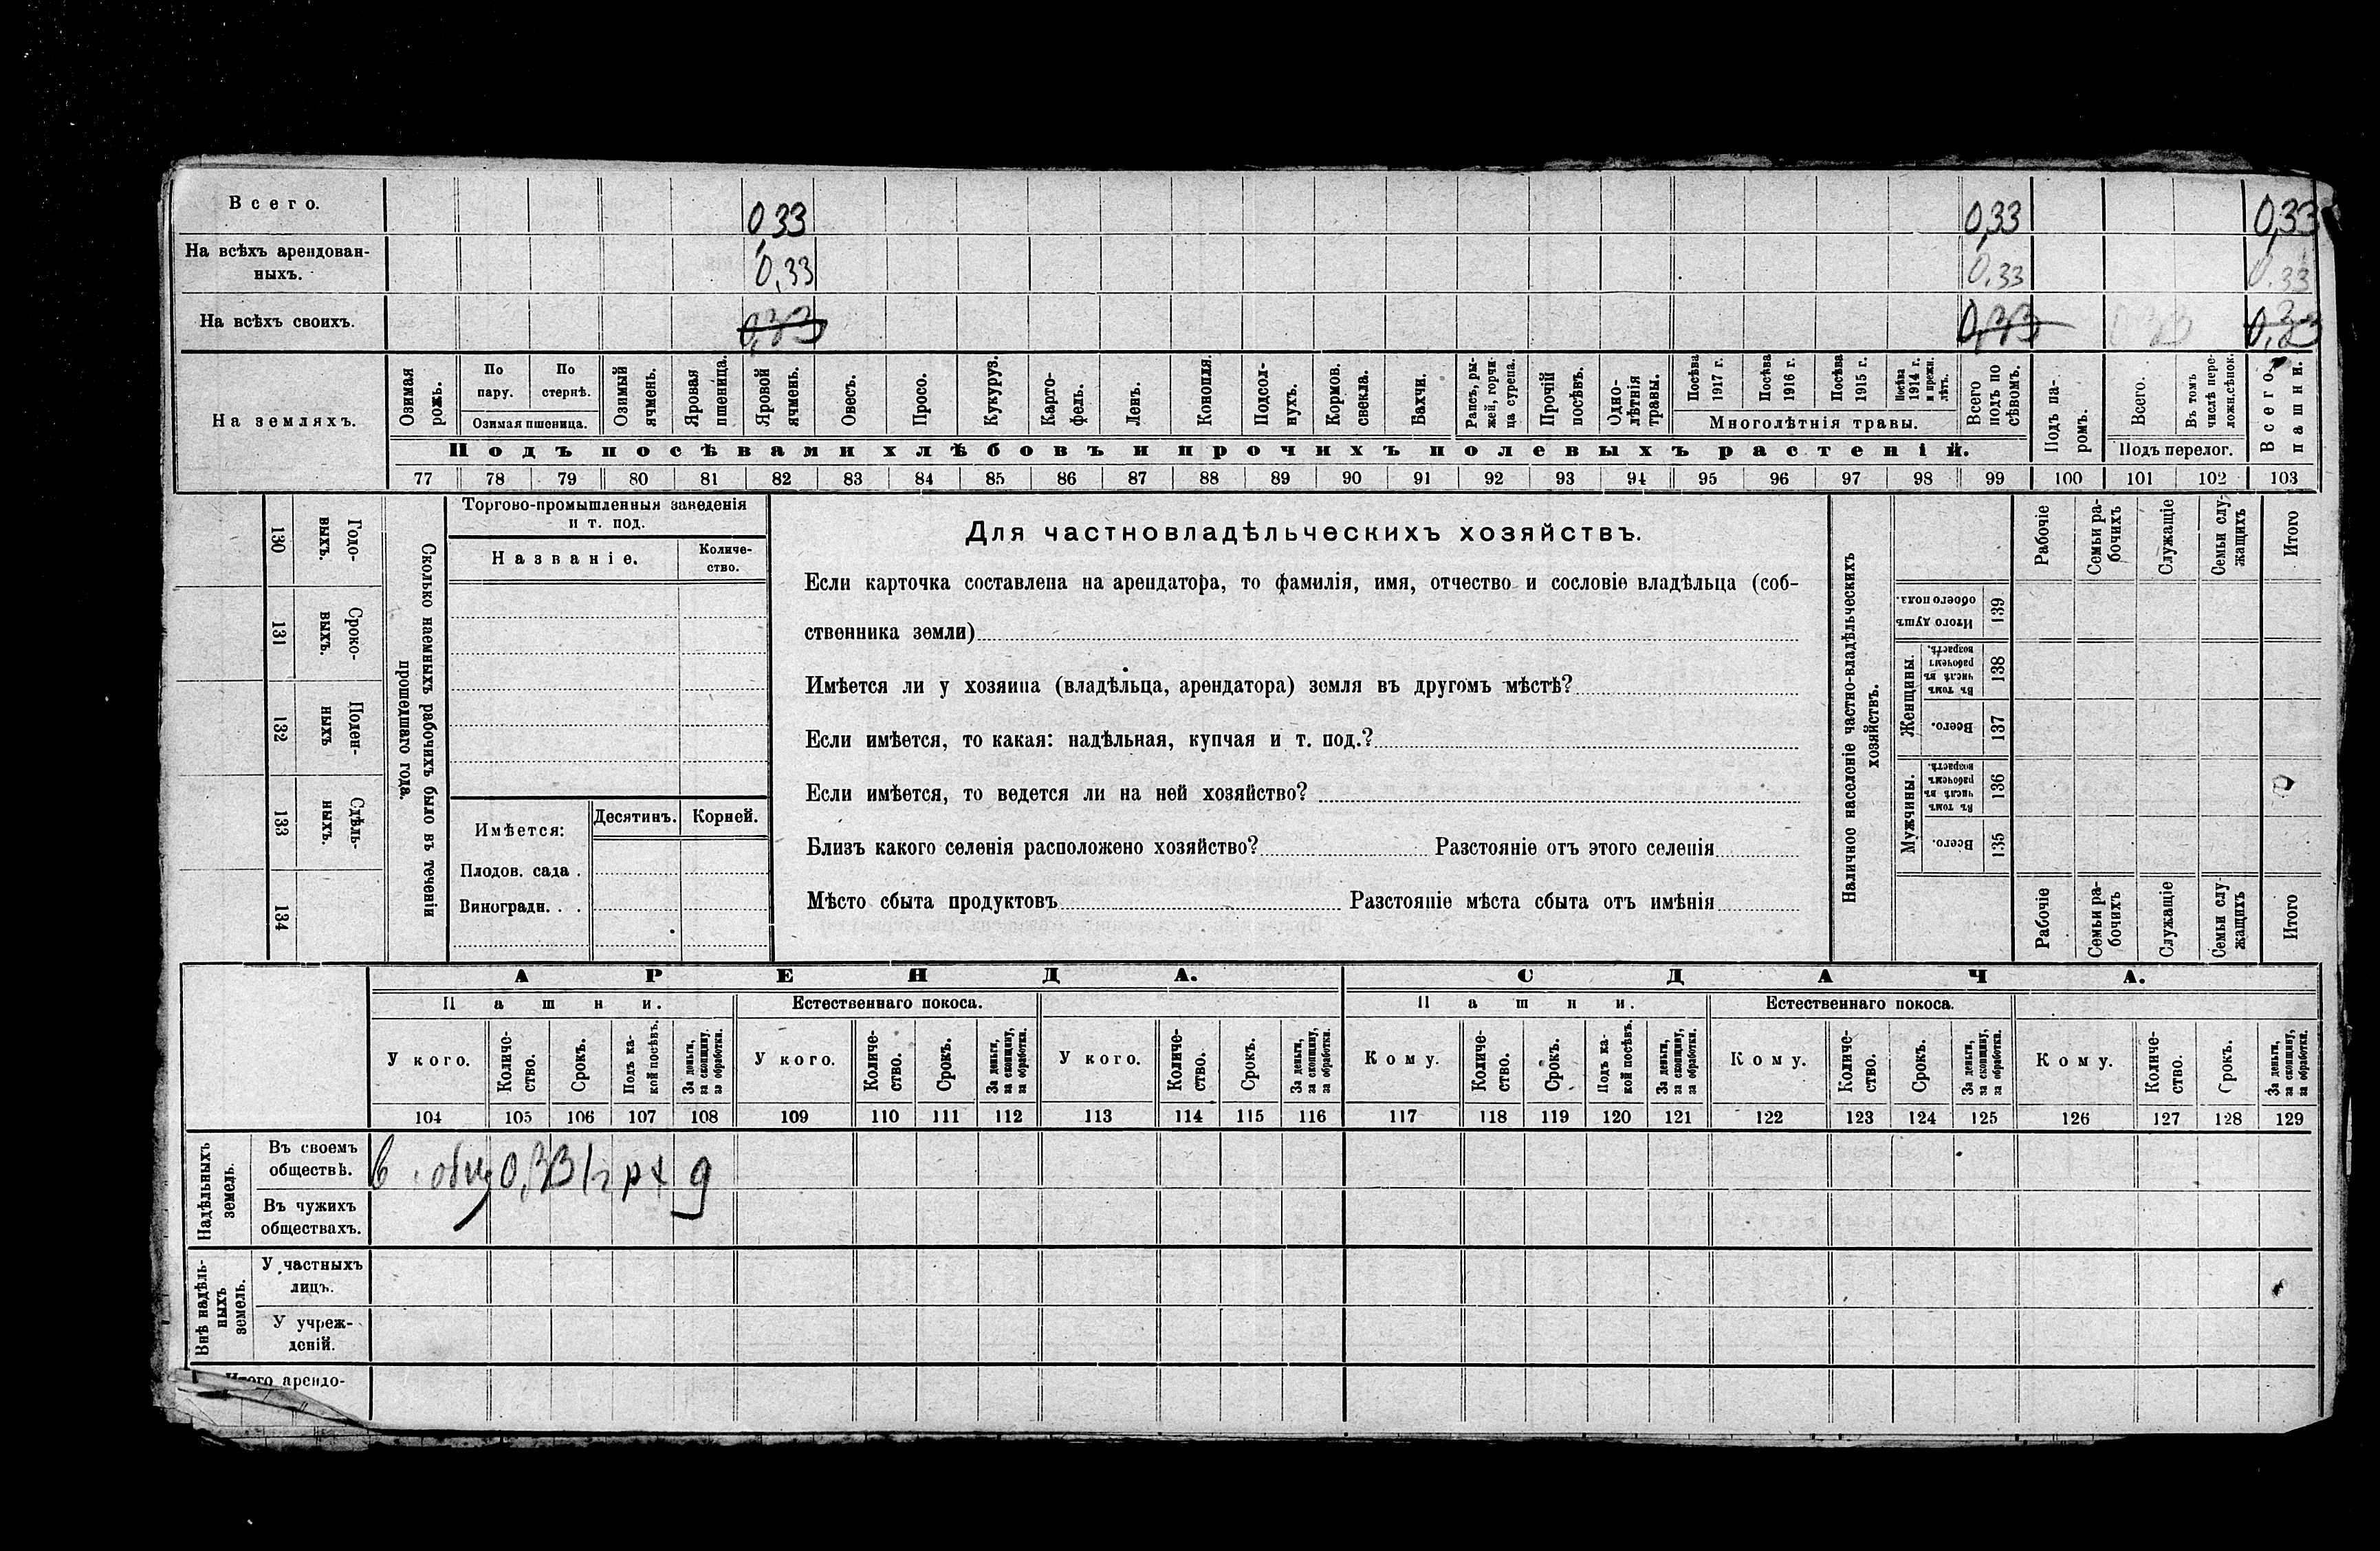 Всего. 0,33 0,33 0,33
На всѣхъ арендован-
ныхъ. 0,33 0,33 0,33
На всѣхъ своихъ. 0,33 0,33 0,33
На земляхъ.
Озимая рожь.
По пару.
По стернѣ.
Озимая пшеница.
Озимый ячмень.
Яровая пшеница.
Яровой ячмень.
Овесъ.
Просо.
Кукуруз.
Карто-
фель.
Ленъ.
Конопля.
Подсол-
нухъ.
Кормов. свекла.
Бахчи.
Рапсъ, ры-
жей, горчи-
ца сурепа.
Прочій посѣвъ.
Одно-
лѣтнія травы.
Посѣва 1917 г.
Посѣва 1916 г.
Посѣва 1915 г.
Посѣва 1914 г. и прежн. лѣтъ.
Многолѣтнія травы.
Всего подъ по
сѣвомъ.
Подъ па-
ромъ.
Всего.
Въ томъ числѣ пере-
ложн.сѣнок.
Подъ перелог.
Всего пашни.
Подъ посѣвами хлѣбовъ и прочихъ полевыхъ растеній.
77 78 79 80 81 82 83 84 85 86 87 88 89 90 91 92 93 94 95 96 97 98 99 100 101 102 103
130 Годо-
выхъ.
131 Сроко-
выхъ.
132 Поден-
ныхъ
133 Сдѣль-
ныхъ.
134
Сколько наемныхъ рабочихъ было въ теченіи
прошедшаго года.
Торгово-промышленныя заведенія
и т. под.
Названіе.
Количе-
ство.
Имѣется:
Десятинъ. Корней.
Плодов. сада .
Виноградн. . .
Для частновладѣльческихъ хозяйствъ.
Если карточка составлена на арендатора, то фамилія, имя, отчество и сословіе владѣльца (соб-
ственника земли)
Имѣется ли у хозяина (владѣльца, арендатора) земля въ другомъ мѣстѣ?
Если имѣется, то какая: надѣльная, купчая и т. под.?
Если имѣется, то ведется ли на ней хозяйство?
Близъ какого селенія расположено хозяйство? Разстояніе отъ этого селенія
Мѣсто сбыта продуктовъ Разстояніе мѣста сбыта отъ имѣнія
Наличное населеніе частно-владѣльческихъ
хозяйствъ.
Рабочіе
Семьи ра-
бочихъ
Служащіе
Семьи слу-
жащихъ
Итого
Итого душъ обоего пола. 139
Женщины.
Въ томъ числѣ въ рабочемъ возрастѣ. 138
Всего. 137
Мужчины.
Въ томъ числѣ въ рабочемъ возрастѣ. 136
Всего. 135
Рабочіе
Семьи ра-
бочихъ
Служащіе
Семьи слу
жащихъ
Итого
АРЕНДА. СДАЧА.
Пашни. Естественнаго покоса. Пашни. Естественнаго покоса.
У кого.
Количе-
ство.
Срокъ.
Подъ ка-
кой посѣвъ.
За деньги, за скопщину, за обработки.
У кого.
Количе-
ство.
Срокъ.
За деньги, за скопщину, за обработки.
У кого.
Количе-
ство.
Срокъ.
За деньги, за скопщину, за обработки.
Кому.
Количе-
ство.
Срокъ.
Подъ ка-
кой посѣвъ.
За деньги, за скопщину, за обработки.
Кому.
Количе-
ство.
Срокъ.
За деньги, за скопщину, за обработки.
Кому.
Количе-
ство.
Срокъ.
За деньги, за скопщину, за обработки.
104 105 106 107 108 109 110 111 112 113 114 115 116 117 118 119 120 121 122 123 124 125 126 127 128 129
Надѣльныхъ
земель.
Въ своемъ
обществѣ. 0,33
Въ чужихъ
обществахъ.
Внѣ надѣль-
ныхъ
земель.
У частныхъ
лицъ.
У учреж-
деній.
Итого арендо-